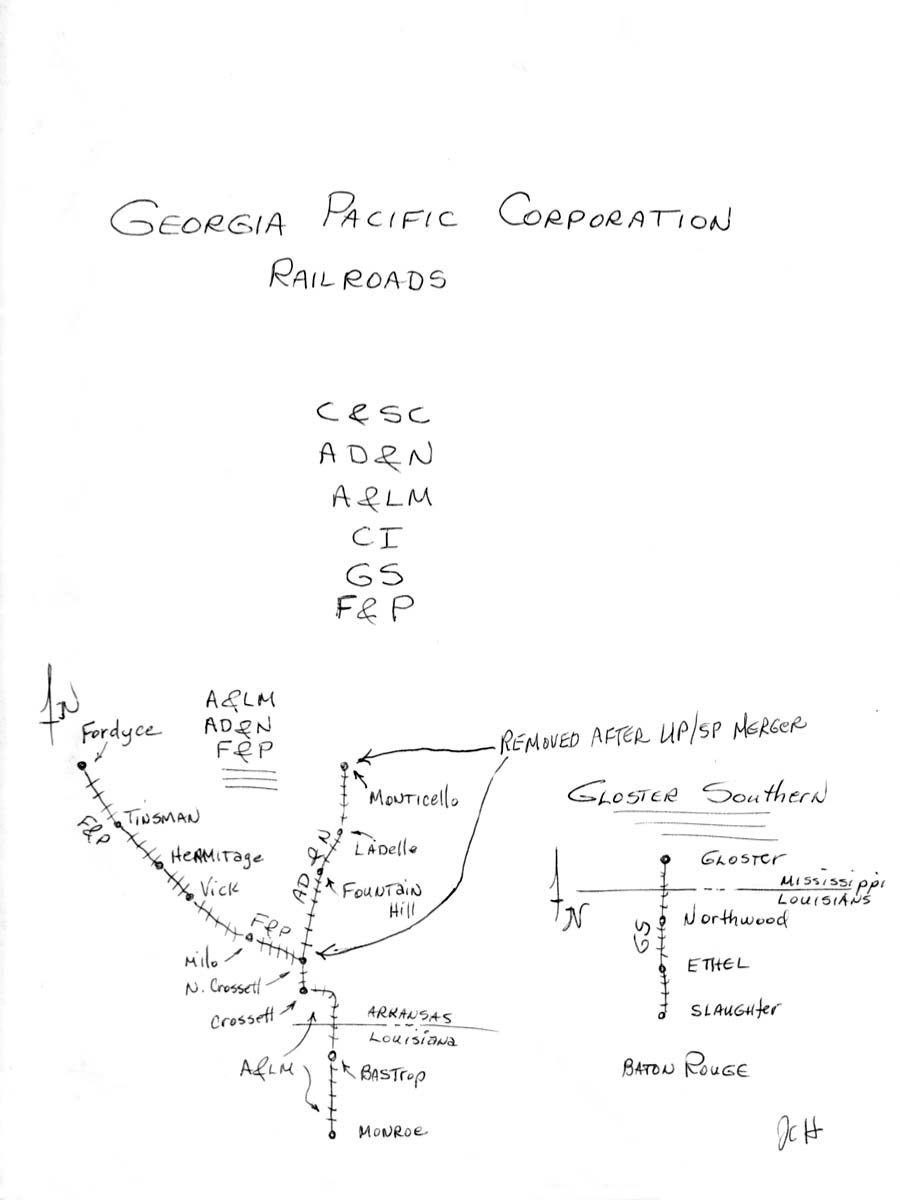 GEORGIA PACIFIC CORPORATION
RAILROADS
C & SC
AD&N
A&LM
CI
GS
F&P
N
A&LM
AD&N
F&P
Fordyce
REMOVED AFTER UP/SP MERGER
MONTICELLO
F&P
TINSMAN
AD&N
LADelle
HERMITAge
FOUNTAIN
Hill
Vick
F&P
Milo
N. Crossett
Crossett
ARKANSAS
LOUISIANA
A&LM
BASTrop
MONROE
GLOSTER Southern
GLOSTER
MISSISSIPPI
LOUISIANS
N
Northwood
GS
ETHEL
SLAUGHter
BATON ROUGE
JCH